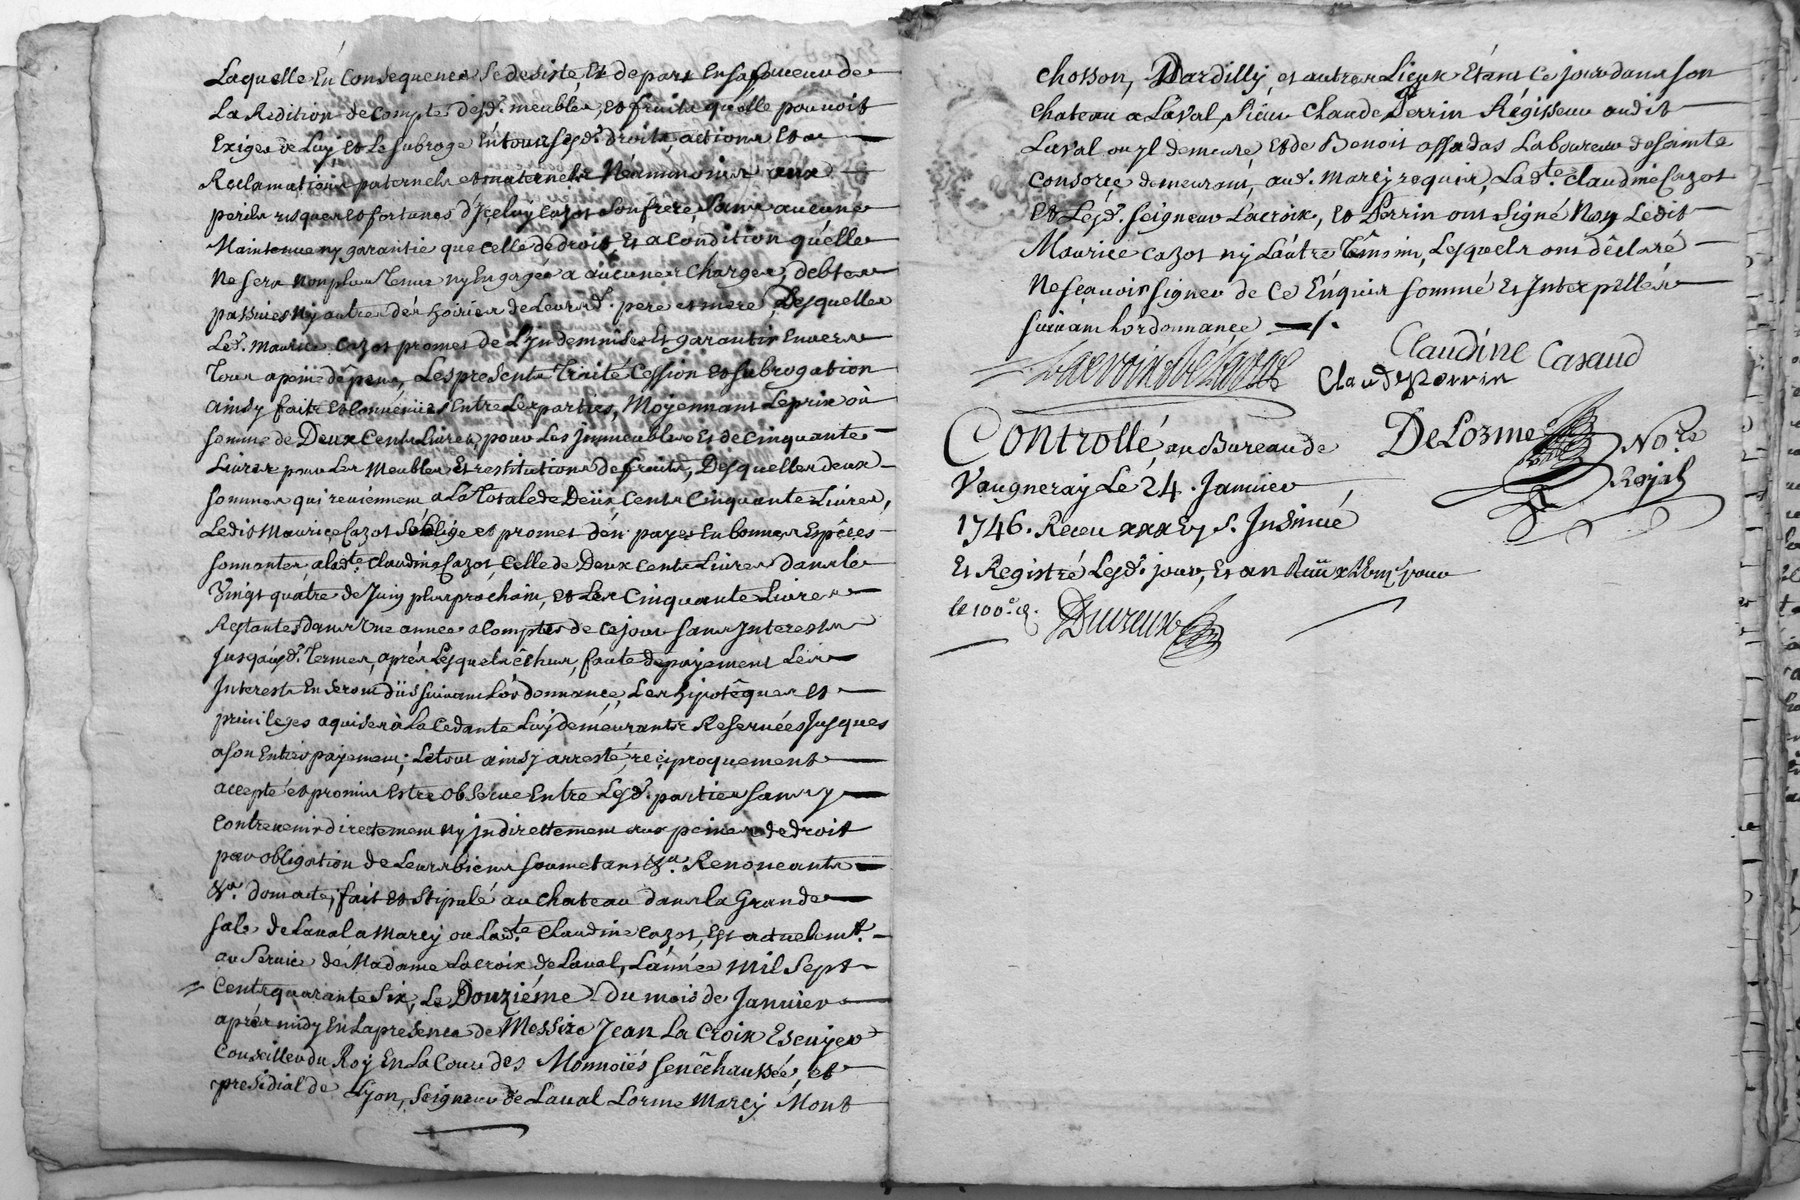 Laquelle En Consequence se desiste, Et depart En sa faveur de
La Redition de Compte desd. meubles, et fruits quelle pouvoit
Exiger de Luy, et Le subroge En tous sesd. droits, actions Et
Reclamations paternels et maternels Néanmoins aux
perils risques et fortunes d'Iceluy Cazot son frere, Sans aucune
Maintenue ny garantie que celle de droit, Et a Condition quelle
Ne sera non plus Tenue ny Engagée a aucunes Charges, debtes
passives ny autres des hoiries de Leursd. pere et mere, Desquelles
Led. Maurice Cazot promet de L'Indemniser Et garantir Envers
Tous a peine dêpens, Les presents Traité Cession et subrogation
ainsy faits et Convenües Entre Les parties, Moyennant Le prix où
somme de Deux Cents Livres pour Les Immeubles et de Cinquante
Livres pour Les Meubles Et restitutions de fruits, Desquelles deux
sommes qui reviennent a La Totale de Deüx Cents Cinquante Livres,
Ledit Maurice Cazot s'oblige et promet d'en payer En bonnes Espêces
sonnantes a lad.te Claudine Cazot, Celle de Deux Cents Livres dans le
Vingt quatre de Juin plus prochain, et Les Cinquante Livres
Restantes dans Une année a Compter de Ce jour sans Interests
Jusqu'auxd. Termes, aprés Lesquels êchus, faute de payement Les
Interests En seront düs suivant L'ordonnance, Les hipotêques et
privileges aquises à La Cedante Luy demeurants Reservées Jusques
a son Entier payement; Le tout ainsy arresté, reciproquement
accepté et promis Estre observé Entre Lesd. parties sans y
Contrevenir directement ny Indirectement aux peines de droit
par obligation de Leurs biens soumetans &a. Renoncants
&a. dont acte, fait et stipulé au Chateau dans la Grande
sale de Laval a Marcy ou Lad.te Claudine Cazot, Est actuelemt.
au Service de Madame Lacroix de Laval, L'année Mil Sept
Cents quarante Six, Le Douziéme Du mois de Janvier
aprés midy En la presence de Messire Jean La Croix Escuyer
Conseiller du Roy En La Cour des Monnoiés senêchaussée, et
presidial de Lyon, Seigneur de Laval Lorme Marcy Mont
Chosson, Dardilly, et autres Lieux Etant Ce jour dans son
Chateau a Laval, Sieur Claude Perrin Régisseur audit
Laval ou Il demeure Et de Benoit affadas Laboureur de sainte
Consorce demeurant, aud. Marcy requis, Lad.te Claudine Cazot
Et Lesd. Seigneur Lacroix, et Perrin ont Signé Non Ledit
Maurice Cazot ny L'autre Têmoin, Lesquels ont dêclaré
Ne sçavoir signer de Ce Enquis sommé Et Interpellés
suivant l'ordonnance
Lacroix de Laval Claudine Cazaud
Claude Perrin
DeLorme No.re
Royal
Controllé, au Bureau de
Vaugneray Le 24. Janvier
1746. Receu Insinué
Et Registré Lesd. jour, Et an
le 100.e d.